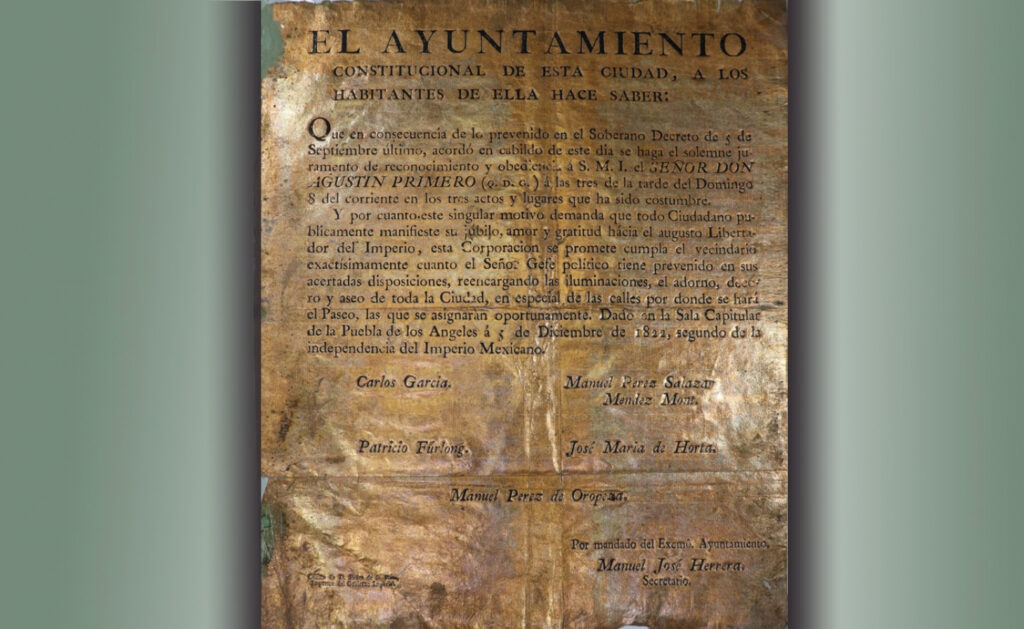 EL AYUNTAMIENTO
CONSTITUCIONAL DE ESTA CIUDAD, A LOS
HABITANTES DE ELLA HACE SABER:
Que en consecuencia de lo prevenido en el Soberano Decreto de 5 de
Septiembre último, acordó en cabildo de este dia se haga el solemne ju-
ramento de reconocimiento y obediencia á S. M. I. el SEÑOR DON
AGUSTIN PRIMERO (Q. D. G.) á las tres de la tarde del Domingo
8 del corriente en los tres actos y lugares que ha sido costumbre.
Y por cuanto este singular motivo demanda que todo Ciudadano pu-
blicamente manifieste su júbilo, amor y gratitud hácia el augusto Liberta-
dor del Imperio, esta Corporacion se promete cumpla el vecindario
exactísimamente cuanto el Señor Gefe político tiene prevenido en sus
acertadas disposiciones, reencargando las iluminaciones, el adorno, deco-
ro y aseo de toda la Ciudad, en especial de las calles por donde se hará
el Paseo, las que se asignarán oportunamente. Dado en la Sala Capitular
de la Puebla de los Angeles á 5 de Diciembre de 1822, segundo de la
independencia del Imperio Mexicano.
Carlos Garcia.
Manuel Perez Salazar
Mendez Mont.
Patricio Fúrlong.
José Maria de Horta.
Manuel Perez de Oropeza.
Por mandado del Exemô. Ayuntamiento,
Manuel José Herrera.
Secretario.
Oficina de D. Pedro de la Rosa,
Impresor del Gobierno Imperial.